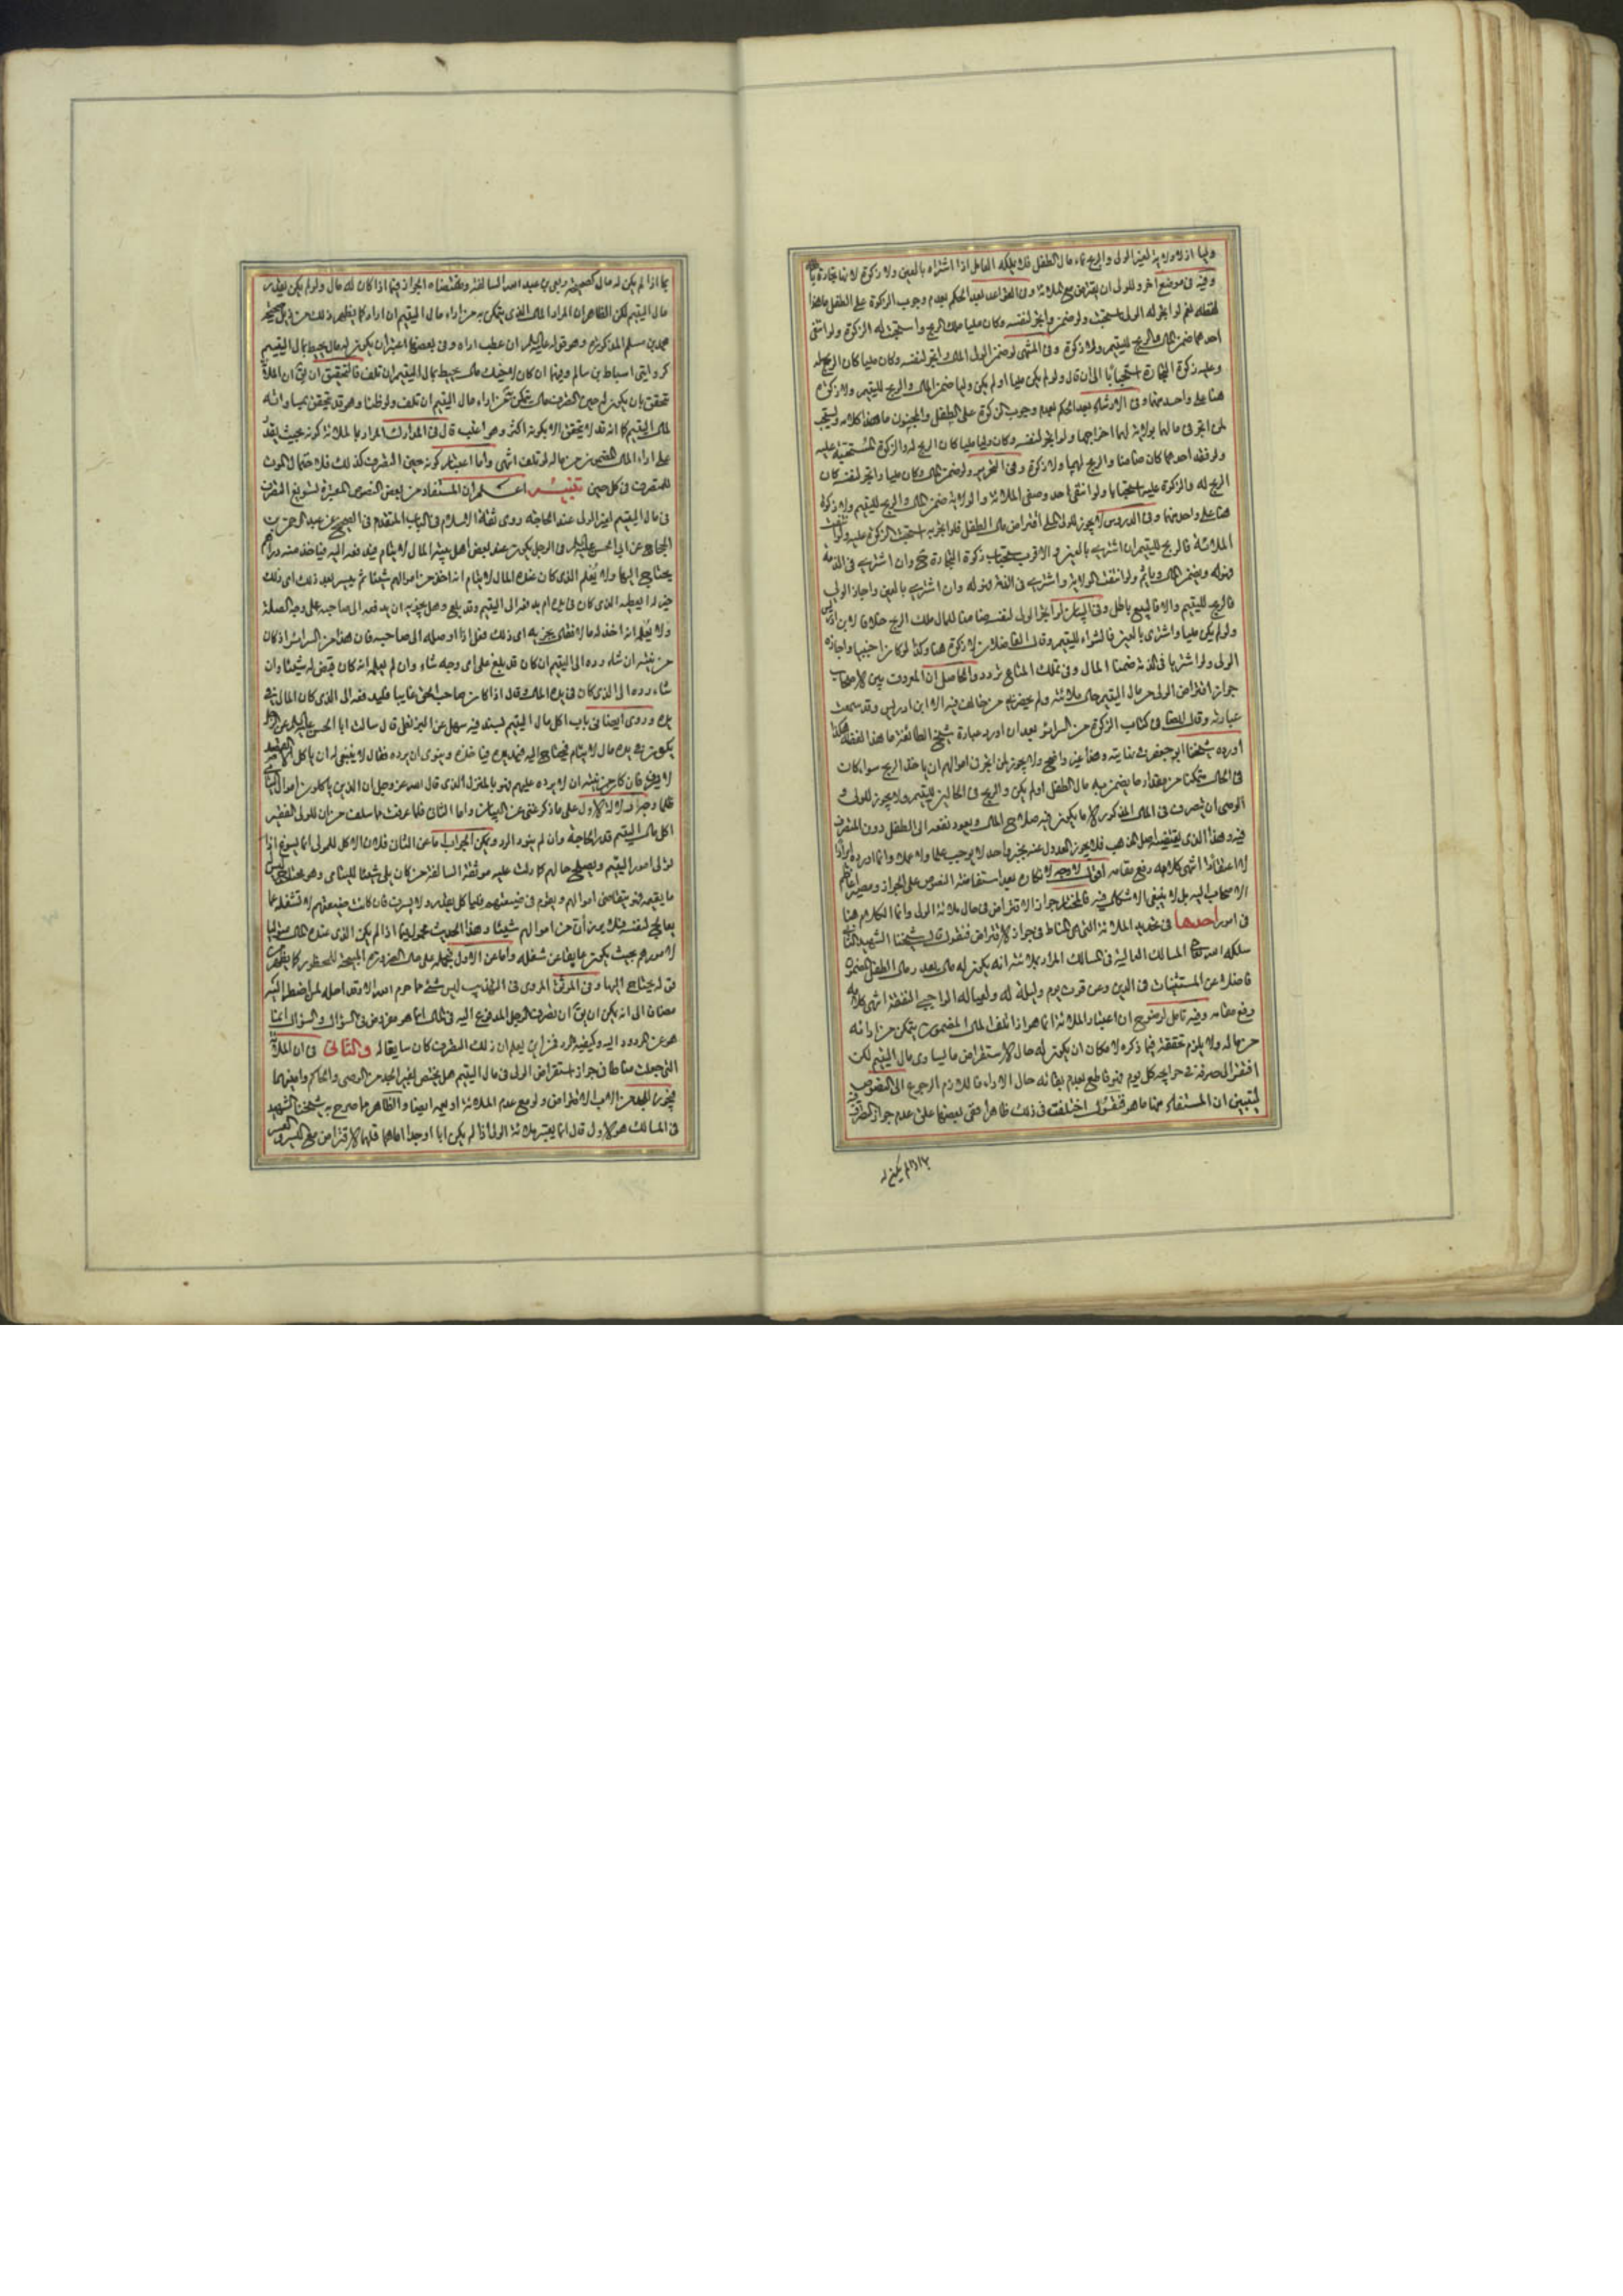 وليا اذ لا ولاية لغير الولى والربح نماء مال الطفل فلا يملكه العامل اذا اشتراه بالعين ولا زكوة
وفيه فى موضع اخر وللولى ان يقترض مع الملائة وفى القواعد بعد الحكم بعدم وجوب الزكوة على الطفل ما هذا
لفظه نعم لو اتجر له الولى استحبت ولو ضمن واتجر لنفسه وكان مليا ملك الربح واستحبت له الزكوة ولو انتفى
احدهما ضمن المال والربح لليتيم ولا زكوة وفى المنتهى لو ضمن الولى المال واتجر لنفسه وكان مليا كان الربح له
وعليه زكوة التجارة استحبابا الى ان قال ولو لم يكن مليا او لم يكن وليا ضمن المال والربح لليتيم ولا زكوة
هنا على واحد منهما وفى الارشاد بعد الحكم بعدم وجوب الزكوة على الطفل والمجنون ما هذا كلامه ويستحب
لمن اتجر فى مالهما بولاية لهما اخراجها ولو اتجر لنفسه وكان وليا مليا كان الربح له والزكوة المستحبة عليه
ولو فقد احدهما كان ضامنا والربح لهما ولا زكوة وفى التحرير ولو ضمن المال وكان مليا واتجر لنفسه كان
الربح له والزكوة عليه استحبابا ولو انتفى احد وصفى الملائة والولاية ضمن المال والربح لليتيم ولا زكوة
هنا على واحد منهما وفى الدروس لا يجوز للولى الملى اقتراض مال الطفل فلو اتجر به استحبت الزكوة عليه ولو انتفت
الملائة فالربح لليتيم ان اشترى بالعين والاقرب استحباب زكوة التجارة ح وان اشترى فى الذمة
فهو له ويضمن المال وياثم ولو انتفت الولاية واشترى فى الذمة فهو له وان اشترى بالعين واجاز الولى
فالربح لليتيم والا فالبيع باطل وفى البيان لو اتجر الولى لنفسه ضامنا للمال ملك الربح خلافا لابن ادريس
ولو لم يكن مليا واشترى بالعين فالشراء لليتيم وقال الفاضلان لا زكوة هنا وكذا لو كان اجنبيا واجازه
الولى ولو اشتريا فى الذمة ضمنا المال وفى تملك المتاع تردد والحاصل ان المعروف بين الاصحاب
جواز اقتراض الولى من مال اليتيم حال ملائته ولم يحضرنى من خالف فيه الا ابن ادريس وقد سمعت
عبارته وقال ايضا فى كتاب الزكوة من السرائر بعد ان اورد عبارة شيخ الطائفة ما هذا لفظه هكذا
اورده شيخنا ابو جعفر فى نهايته وهذا غير واضح ولا يجوز لمن اتجر فى اموالهم ان ياخذ الربح سواء كان
فى الحال متمكنا من مقدار ما يضمن به مال الطفل او لم يكن والربح فى الحالين لليتيم ولا يجوز للولى و
الوصى ان يتصرف فى المال المذكور الا ما يكون فيه صلاح المال ويعود نفعه الى الطفل دون المتصرف
فيه وهذا الذى يقتضيه اصل المذهب فلا يجوز العدول عنه بخبر واحد لا يوجب علما ولا عملا وانما اورده ايرادا
لا اعتقادا انتهى كلامه رفع مقامه اقول لا وجه لانكاره بعد استفاضة النصوص على الجواز ومصير اعاظم
الاصحاب اليه بل لا ينبغى الاشكال فيه فالمختار جواز الاقتراض فى حال ملائة الولى وانما الكلام هنا
فى امور احدها فى تحديد الملائة التى هى المناط فى جواز الاقتراض فنقول قال شيخنا الشهيد الثانى
سلكه الله تعالى المسالك العالية فى المسالك المراد بملائته انه يكون له مال بقدر مال الطفل المضمون
فاضلا عن المستثنيات فى الدين وعن قوت يوم وليلة له ولعياله الواجبى النفقة انتهى كلامه
رفع مقامه وفيه تامل لوضوح ان اعتبار الملائة انما هو اذا تلف المال المضمون يتمكن من ادائه
من ماله ولا يلزم تحققه فيما ذكره لامكان ان يكون له حال الاستقراض ما يساوى مال اليتيم لكن
افتقر الى صرفه فى حوايجه كل يوم فهو قاطع بعدم بقائه حال الاداء فاللازم الرجوع الى النصوص
ليتبين ان المستفاد منها ما هو فنقول اختلفت فى ذلك ظاهرا ففى بعضها على عدم جواز التصرف
بما اذا لم يكن له
بما اذا لم يكن له مال كصحيحة ربعى بن عبد الله السالفة ومقتضاه الجواز فيما اذا كان له مال ولو لم يكن بقدر
مال اليتيم لكن الظاهر ان المراد المال الذى يتمكن به من اداء مال اليتيم ان اراد كما يظهر ذلك من
محمد بن مسلم المذكورة وهو قوله عليه السلام ان عطب اداه وفى بعضها اعتبر ان يكون له مال يحيط بمال اليتيم
كروايتى اسباط بن سالم وفيها ان كان لاخيك مال يحيط بمال اليتيم ان تلف فالتحقيق ان يق ان الملائة
تتحقق بان يكون له حين التصرف مال يتمكن من اداء مال اليتيم ان تلف ولو ظنا وهو قد يتحقق بمساواته
لمال اليتيم كما انه قد لا يتحقق الا بكونه اكثر وهو اغلب قال فى المدارك المراد بالملائة كونه بحيث يقدر
على اداء المال المضمون من ماله لو تلف انتهى واما اعتبار كونه حين التصرف كذلك فلاحتمال الموت
للمتصرف فى كل حين تنبيه اعلم ان المستفاد من بعض النصوص المعتبرة تسويغ التصرف
فى مال اليتيم لغير الولى عند الحاجة روى ثقة الاسلام فى الباب المتقدم فى الصحيح عن عبد الرحمن بن
الحجاج عن ابى الحسن عليه السلام فى الرجل يكون عند بعض اهل بيته المال لايتام فيدفعه اليه فياخذ منه دراهم
يحتاج اليها ولا يعلم الذى كان عنده المال للايتام انه اخذ من اموالهم شيئا ثم ييسر بعد ذلك اى ذلك
خير له ايعطيه الذى كان فى يده ام يدفعه الى اليتيم وقد بلغ وهل يجزيه ان يدفعه الى صاحبه على وجه الصلة
ولا يعلمه انه اخذ له مالا فقال يجزيه اى ذلك فعل اذا اوصله الى صاحبه فان هذا من السرائر اذ كان
من نيته ان شاء رده الى اليتيم ان كان قد بلغ على اى وجه شاء وان لم يعلمه انه كان قبض له شيئا وان
شاء رده الى الذى كان فى يده المال وقال اذا كان صاحب المال غايبا فليدفعه الى الذى كان المال فى
يده وروى ايضا فى باب اكل مال اليتيم بسند فيه سهل عن البزنطى قال سالت ابا الحسن عليه السلام عن الرجل
يكون فى يده مال لايتام فيحتاج اليه فيمد يده فياخذه وينوى ان يرده فقال لا ينبغى له ان ياكل الا القصد
لا يسرف فان كان من نيته ان لا يرده عليهم فهو بالمنزل الذى قال الله عز وجل ان الذين ياكلون اموال اليتامى
ظلما وجه دلالة الاول على ما ذكر غنى عن البيان واما الثانى فلما عرفت مما سلف من ان للولى الفقير
اكل مال اليتيم قدر الحاجة وان لم ينو الرد ويمكن الجواب اما عن الثانى فلان الاكل للمولى انما يسوغ اذا
تولى امور اليتيم ويصلح حالهم كما دلت عليه موثقة السالفة من كان يلى شيئا لليتامى وهو محتاج ليس له
ما يقيمه فهو يتقاضى اموالهم ويقوم فى ضيعتهم فلياكل بقدر ولا يسرف فان كانت ضيعتهم لا تشغله عما
يعالج لنفسه فلا يرزأن من اموالهم شيئا وهذا الحديث محمول فيما اذا لم يكن الذى عنده المال متوليا
لامورهم بحيث يكون عايقا عن شغله واما عن الاول فبحمله على حال الضرورة المبيحة للمحظور كما يظهر من
قوله يحتاج اليها وفى الموثق المروى فى التهذيب ليس شئ مما حرم الله الا وقد احله لمن اضطر اليه
مضافا الى انه يمكن ان يق ان تصرف الرجل المدفوع اليه فى المال انما هو مفروض فى السؤال والسؤال انما
هو عن المردود اليه وكيفية الرد فمن اين يعلم ان ذلك التصرف كان سايغا له والثانى فى ان الملائة
التى جعلت مناطا فى جواز استقراض الولى فى مال اليتيم هل يختص لغير الجد من الوصى والحاكم وامينهما
فيجوز للجد والاب الاقتراض ولو مع عدم الملائة او يعمه ايضا والظاهر ما صرح به شيخنا الشهيد
فى المسالك هو الاول قال انما يعتبر ملائة الولى اذا لم يكن ابا او جدا اما هما فلهما الاقتراض مع اليسر والعسر